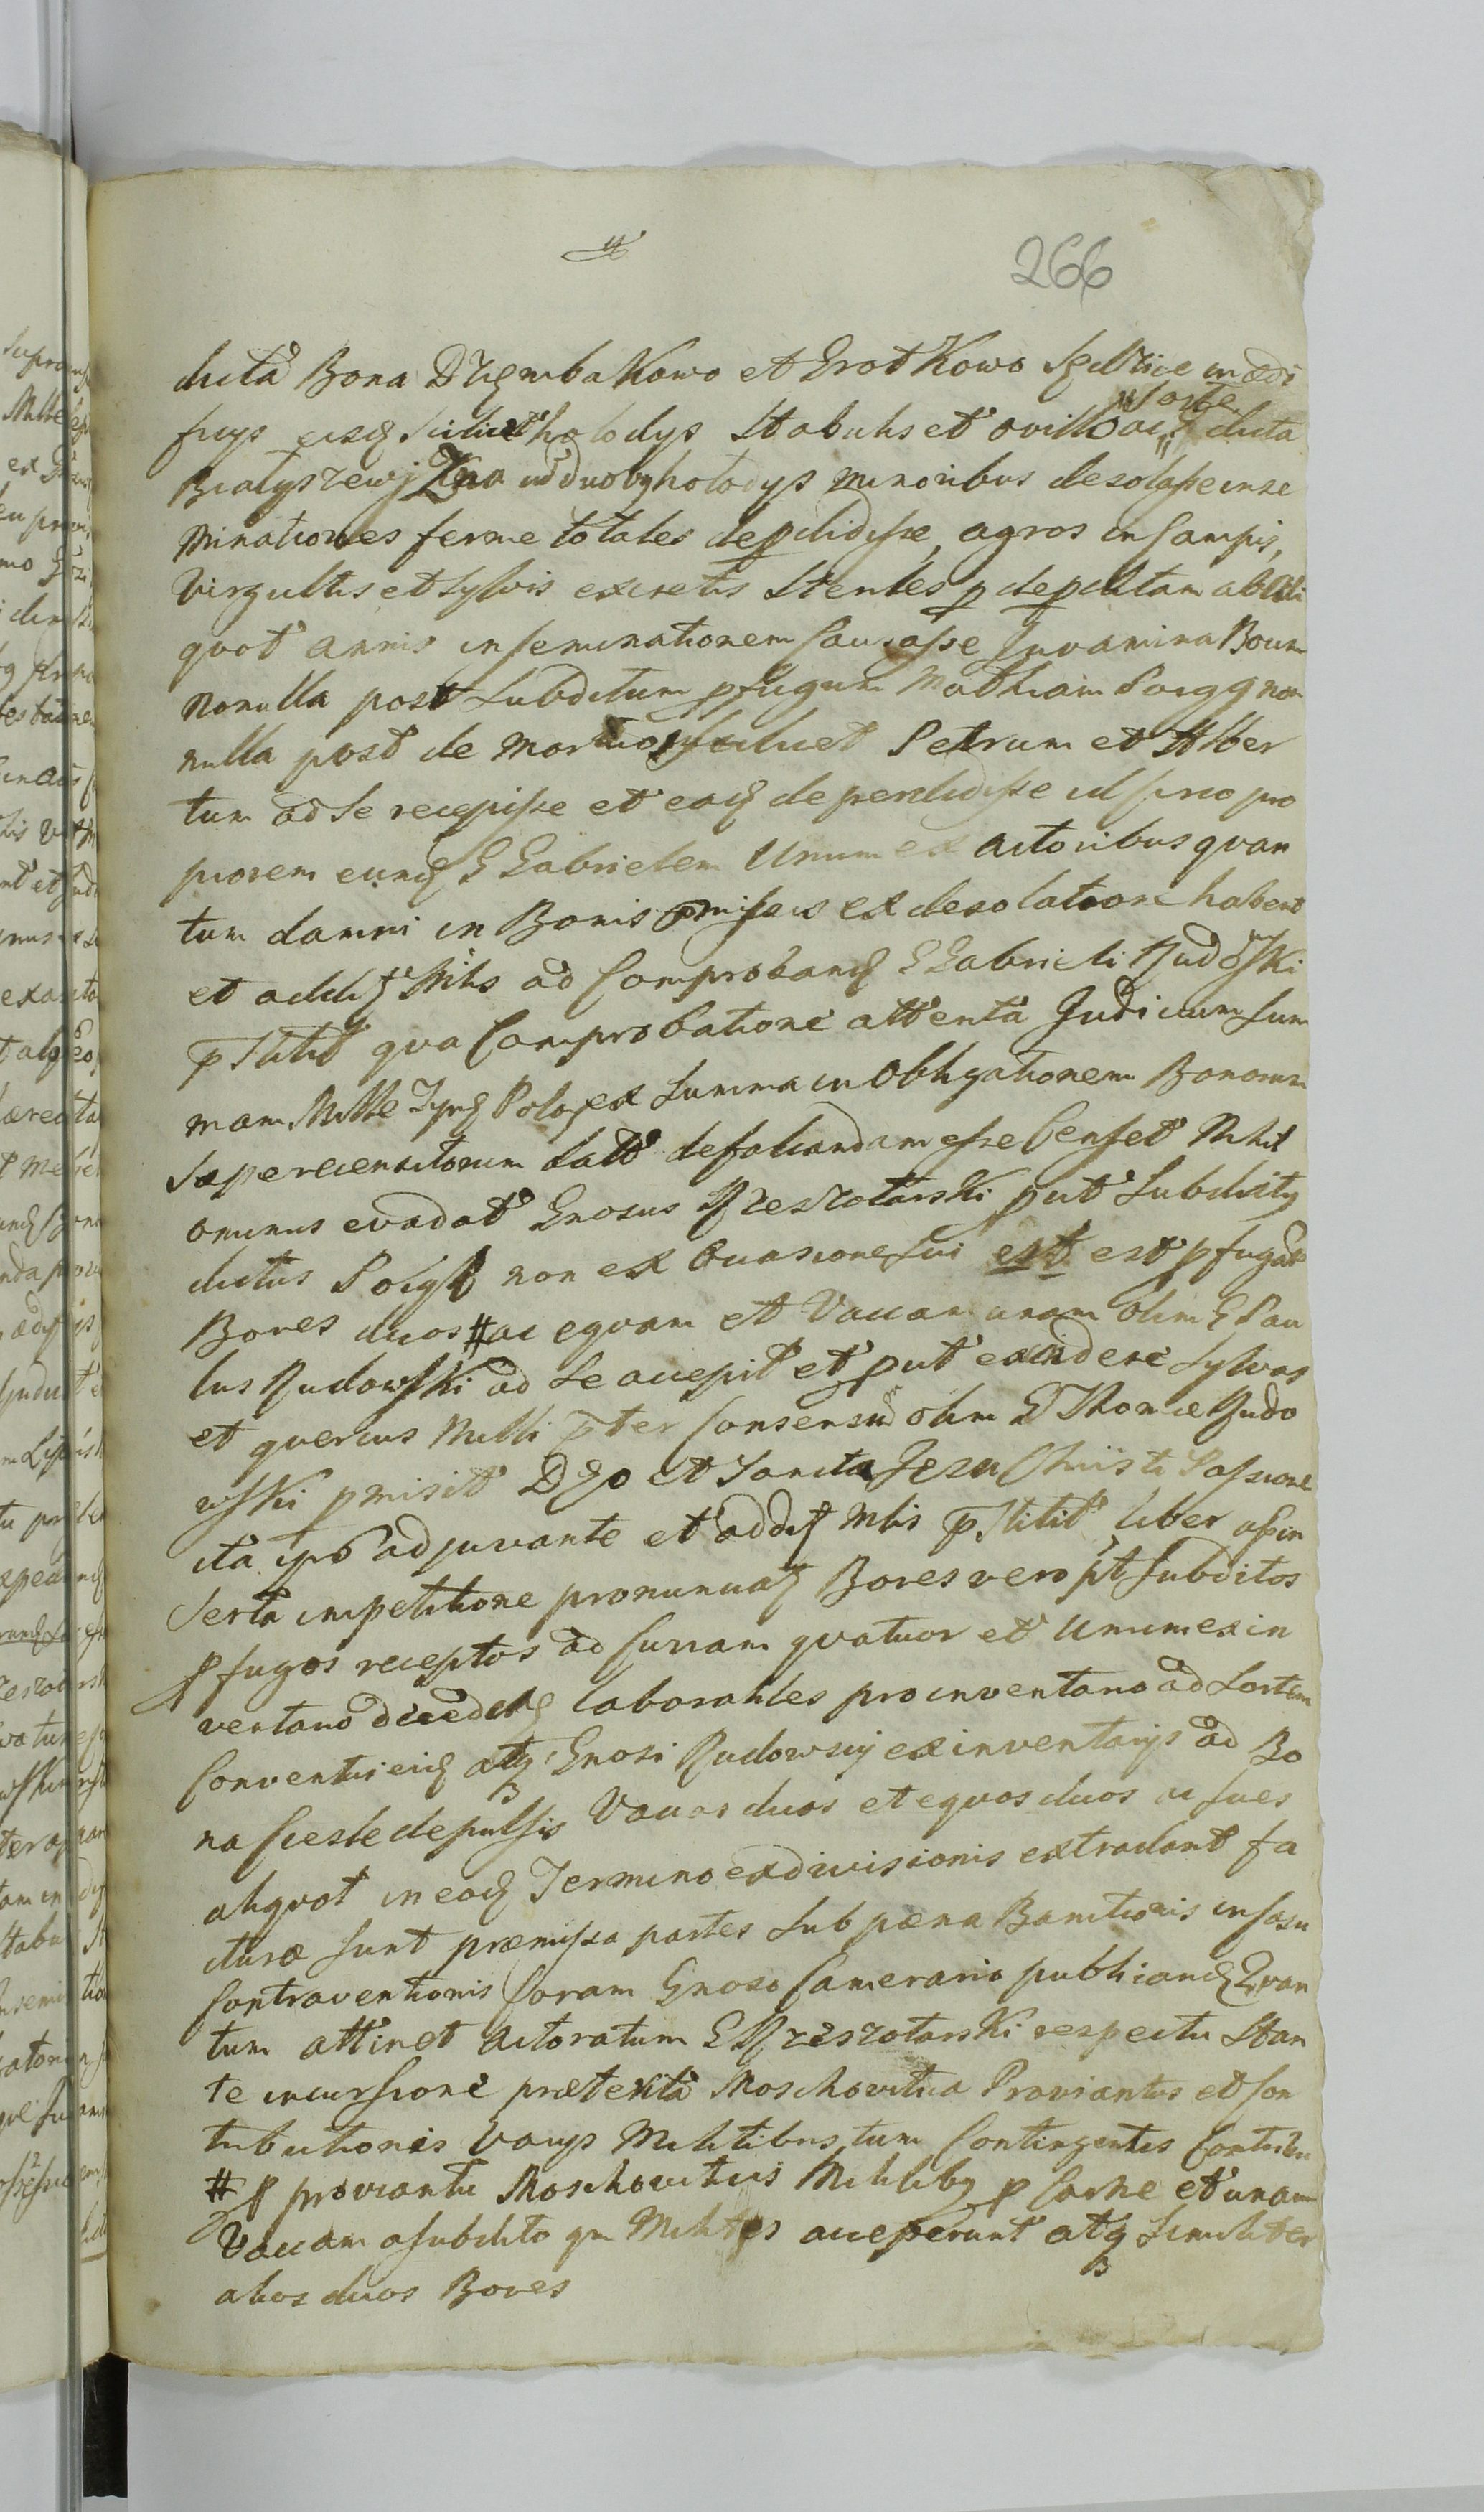 266
dicta Bona Drzembakowo et Grotkowo Scultice in ædi
ficys eisq scilicet holodys Stabulis et ovili ac Sorte dicta
Bialyszewizna ud duobq holodys minoribus desolasse inse
minationes ferme totales depdidisse, agros in Campis,
Virgultis et sylvis excretis Stentes p depditam ab ali
quot annis inseminationem Causasse Juvamina Boum
nonulla post subditum pfugum Mathiam Poigq non
nulla post de mortuos scilicet Petrum et Alber
tum ad se recepisse et eaq deperdidisse id circo pro
piorem eunq G Gabrielem Unum ex actoribus quan
tum damni in Bonis pmissis ex desolatione habent
et addit Mihi ad Comprobanq G Gabrieli Rudowski
pstitit qua Comprobatione attenta Judicium sum
mam Mille Tynq Polo ex Summa in Obligationem Bonorum
sæperecensitorum datt defalcandam esse Censet Nihil
ominus evadat Gnosus Rzeszotarski put Subditq
dictus Poigk non ex Occasione sui est est pfugat
Boves duos # ac equam et Vaccam unam olim G Pau
lus Rudowski ad se accepit et put excidere sylvas
et quercus Nulli pter Consensum olim G Thomæ Rudo
wski pmisit Dgo et Sancta Jesu Christi Passione
ita ipso adjuvante et addit Mlis pstitit liber ab in
serta impetitione pronunciat Boves vero pt subditos
pfugos receptos ad Curiam quatuor et Unum ex in
ventario laborabiles pro inventario ad Sortem
Conventi eiq atq Gnosi Rudowscy ex inventarys ad Bo
na depulsis Vaccas duas et equos duos ac sues
aliquot in eoq Termino exdivisionis extradant fa
cturæ sunt præmissa partes sub pæna Banitionis in Casu
Contraventionis Coram Gnoso Camerario publicanq Quan
tum attinet actoratum G Rzeszotarski respectu Stan
te incursione prætexta Moschovitica Proviantus et Con
tributionis Varys Militibus tum Contingentis Contribu
# p proviantu Moschoviticis Militibq p Carne et unam
Vaccam a subdito qm Milites acceperunt atq similiter
alios duos Boves